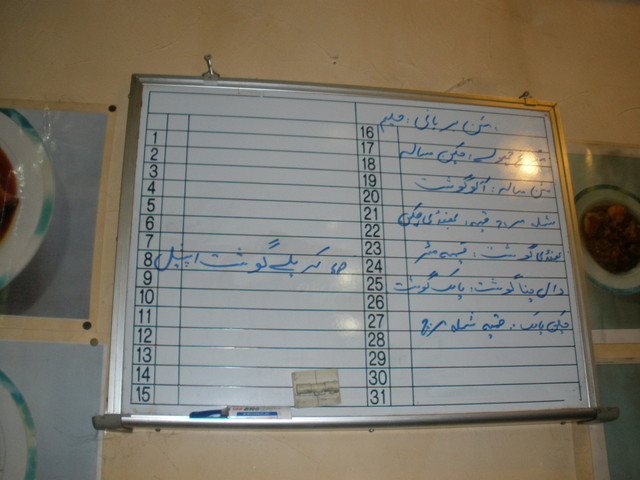 مٹن بریانی : حلیم
چھولے : چکن مسالہ
مٹن مسالہ : آلو گوشت
شملہ مرچ قیمہ : بھنڈی چکن
بھنڈی گوشت : قیمہ مٹر
کریلے گوشت اسپیشل
دال چنا گوشت : پالک گوشت
چکن پالک : قیمہ شملہ مرچ
1
2
3
4
5
6
7
8
9
10
11
12
13
14
15
16
17
18
19
20
21
22
23
24
25
26
27
28
29
30
31